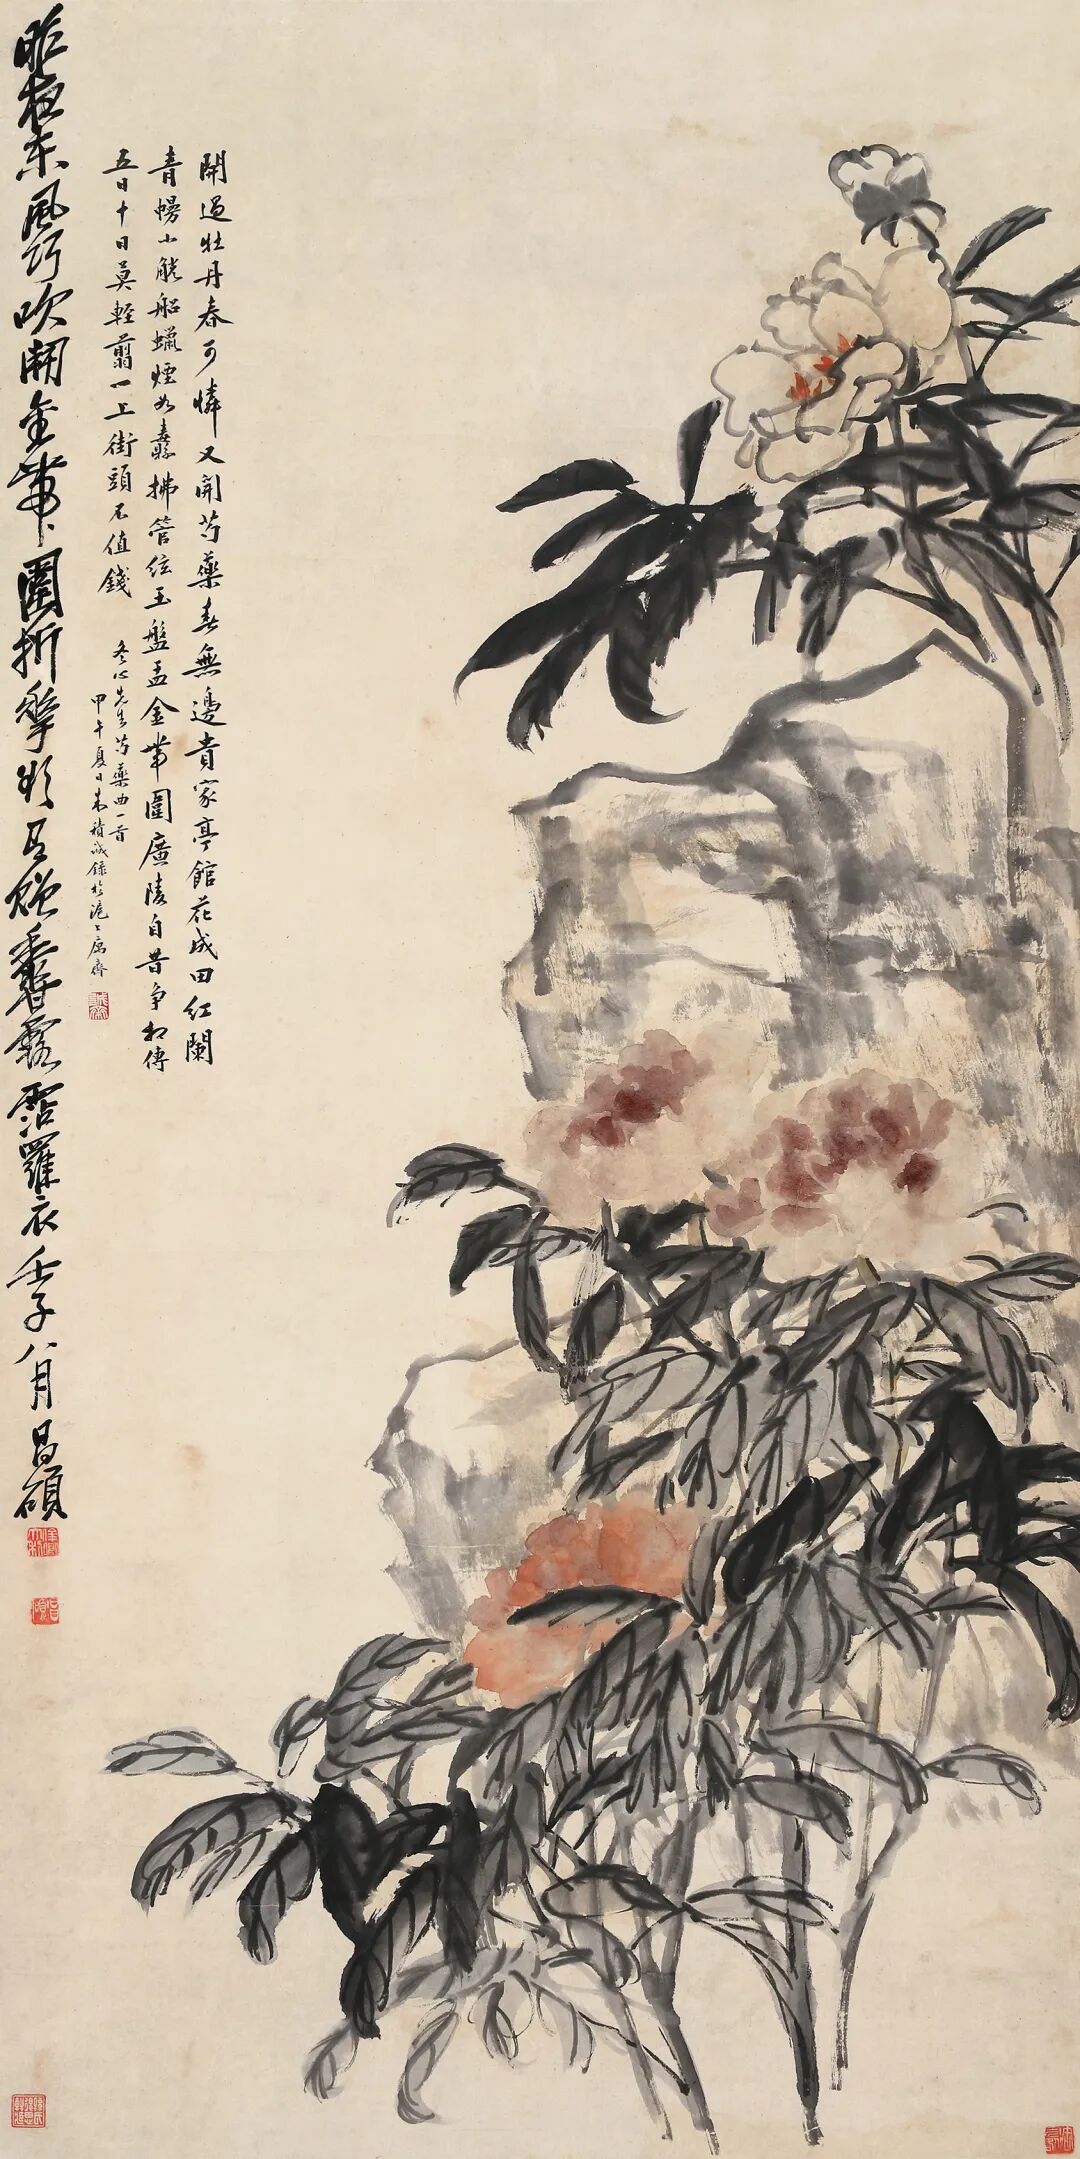 開過牡丹春可憐又開芍藥春無邊貴家亭館花成田紅闌
青幔小觥船蠟煙如纛拂管絃玉盤盂金帶圍廣陵自昔爭相傳
五日十日莫輕翦一上街頭不值錢
冬心先生芍藥曲一首
甲午夏日朱積誠錄於滬上
昨夜東風巧吹開金帶圍折擎欲有贈香露霑羅衣壬子八月昌碩